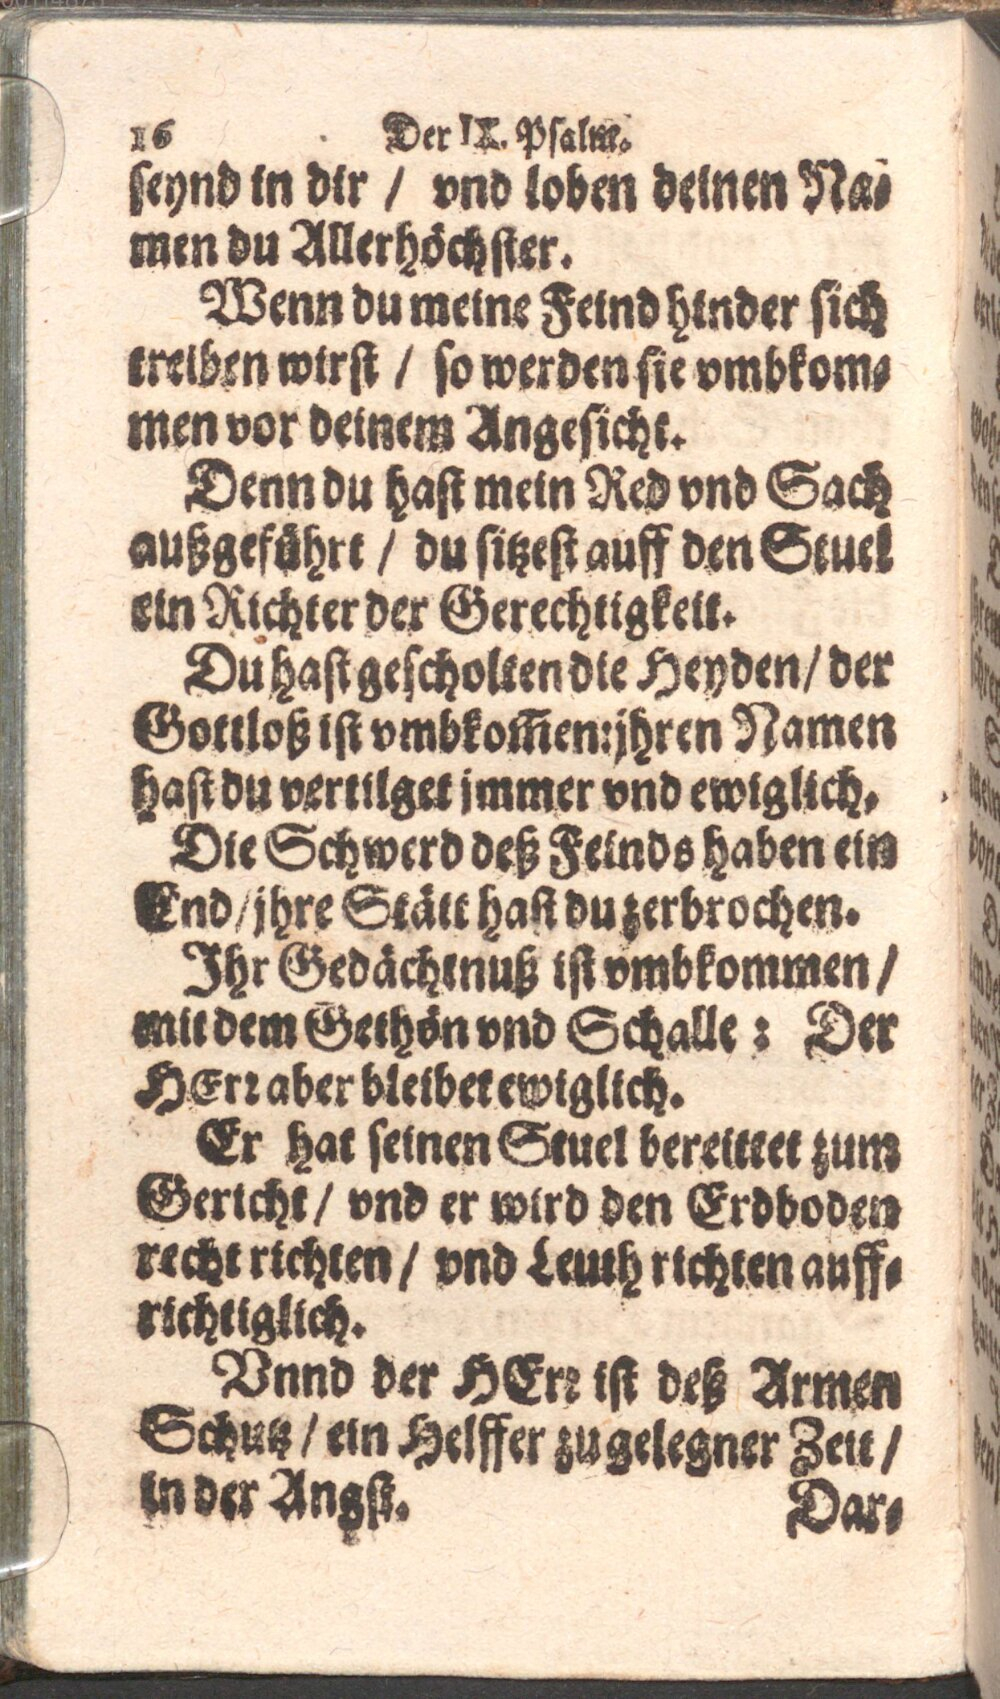 16 Der IX. Psalm.
seynd in dir / vnd loben deinen Na-
men du Allerhöchster.
Wenn du meine Feind hinder sich
treiben wirst / so werden sie vmbkom-
men vor deinem Angesicht.
Denn du hast mein Red vnd Sach
außgeführt / du sitzest auff den Stuel
ein Richter der Gerechtigkeit.
Du hast gescholten die Heyden / der
Gottloß ist vmbkom̃en: jhren Namen
hast du vertilget jmmer vnd ewiglich.
Die Schwerd deß Feinds haben ein
End / jhre Stätt hast du zerbrochen.
Ihr Gedächtnuß ist vmbkommen /
mit dem Gethön vnd Schalle: Der
HErr aber bleibet ewiglich.
Er hat seinen Stuel bereittet zum
Gericht / vnd er wird den Erdboden
recht richten / vnd Leuth richten auff-
richtiglich.
Vnnd der HErr ist deß Armen
Schutz / ein Helffer zu gelegner Zeit /
in der Angst.
Dar-